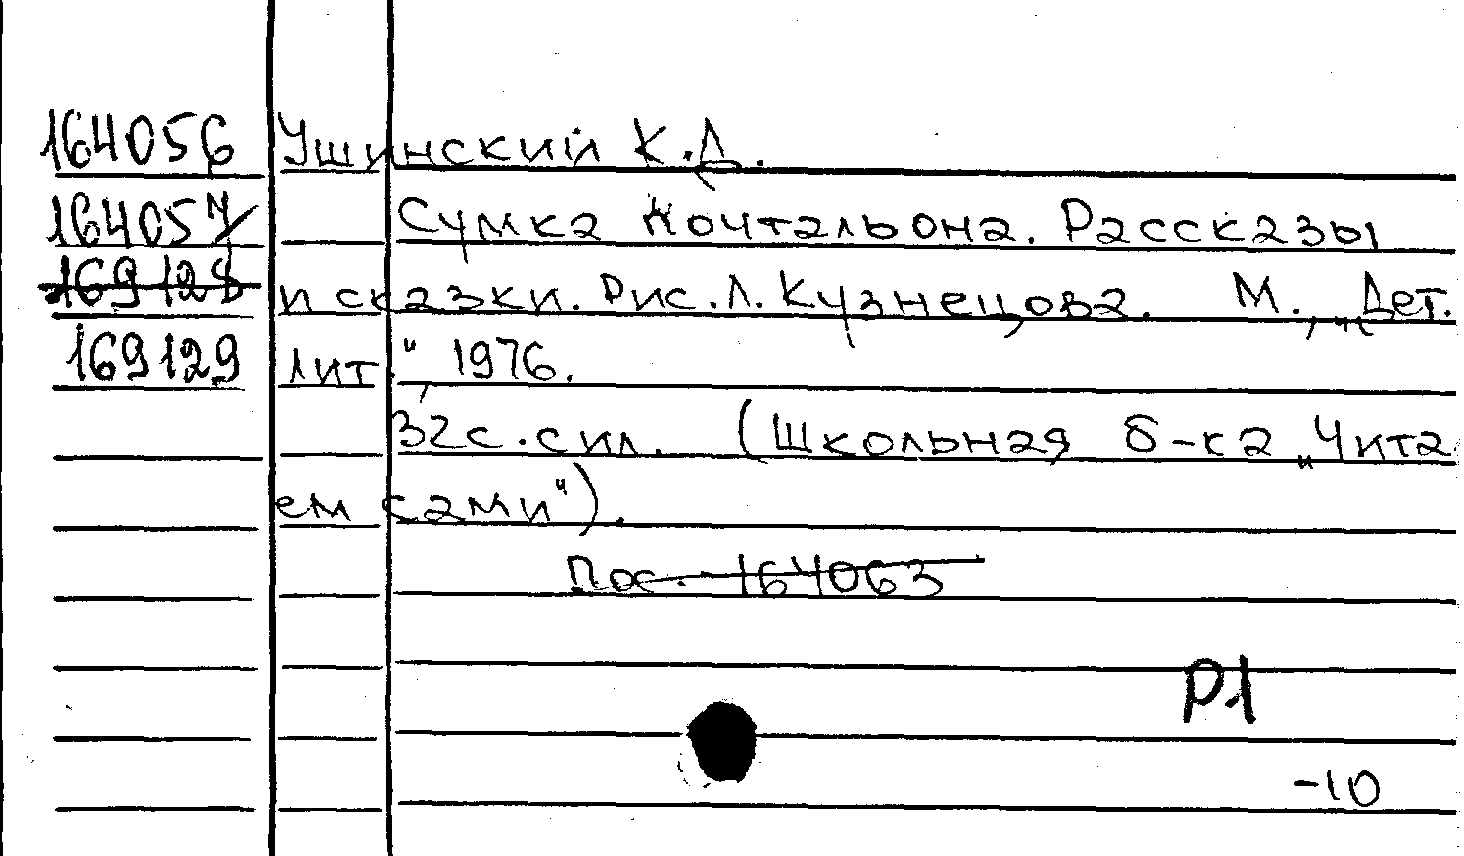 164056 Ушинский К.Д.
164057 Сумка почтальона. Рассказы
169128 и сказки. Рис. Л. Кузнецова. М., „Дет.
169129 лит.", 1976.
32с. с ил. (Школьная б-ка „Чита
ем сами").
Пос. 164063
Р1
-10